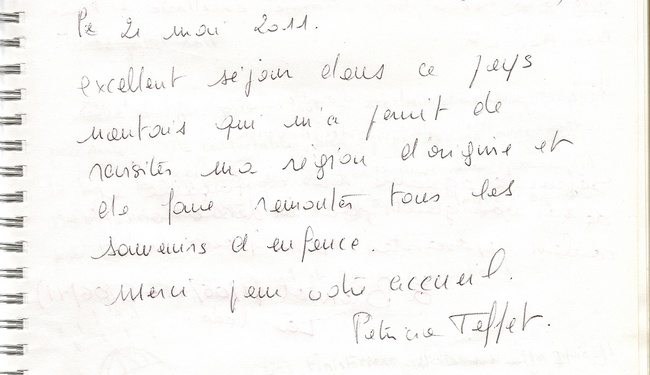 Le 21 mai 2011.
excellent séjour dans ce pays
nantais qui m'a permit de
revisiter ma région d'origine et
de faire remonter tous les
souvenirs d'enfance.
Merci pour votre accueil.
Patricia Teffet.